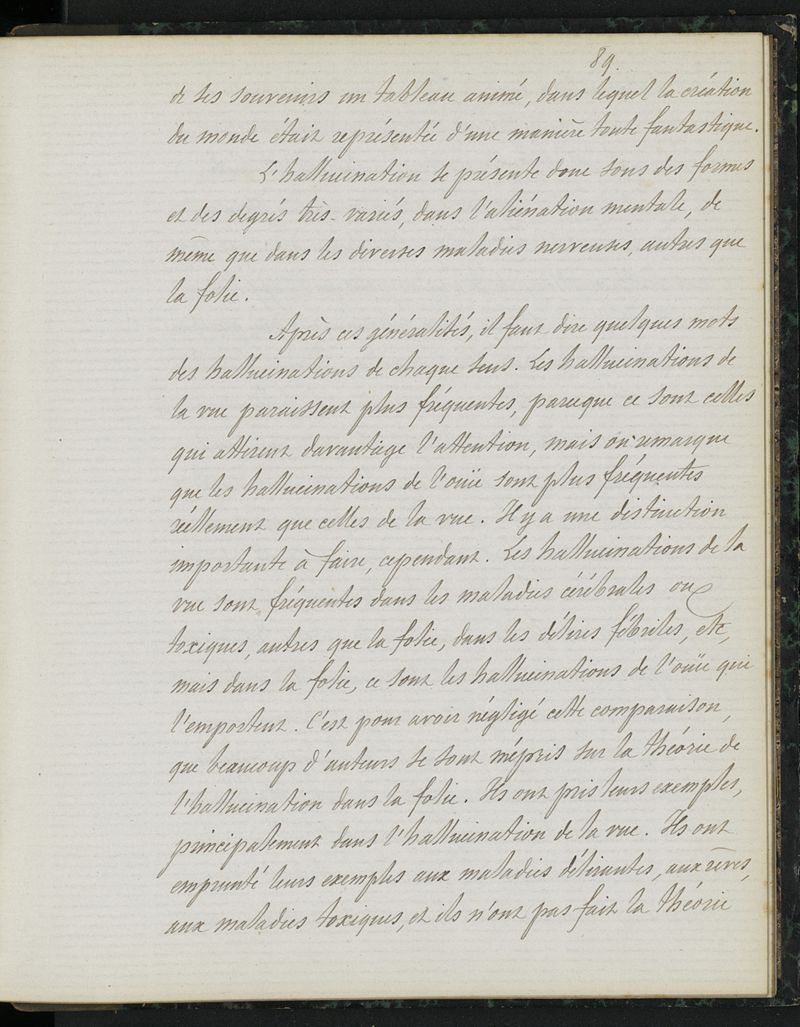 89.
de ses souvenirs un tableau animé, dans lequel la création
du monde était représentée d'une manière toute fantastique.
L'hallucination se présente donc sous des formes
et des degrés très-variés, dans l'aliénation mentale, de
même que dans les diverses maladies nerveuses, autres que
la folie.
Après ces généralités, il faut dire quelques mots
des hallucinations de chaque sens. Les hallucinations de
la vue paraissent plus fréquentes, parceque ce sont celles
qui attirent davantage l'attention, mais on remarque
que les hallucinations de l'ouïe sont plus fréquentes
réellement que celles de la vue. Il y a une distinction
importante à faire, cependant. Les hallucinations de la
vue sont fréquentes dans les maladies cérébrales ou
toxiques, autres que la folie, dans les délires fébriles, etc,
mais dans la folie, ce sont les hallucinations de l'ouïe qui
l'emportent. C'est pour avoir négligé cette comparaison,
que beaucoup d'auteurs se sont mépris sur la théorie de
l'hallucination dans la folie. Ils ont pris leurs exemples,
principalement dans l'hallucination de la vue. Ils ont
emprunté leurs exemples aux maladies délirantes, aux rêves,
aux maladies toxiques, et ils n'ont pas fait la théorie